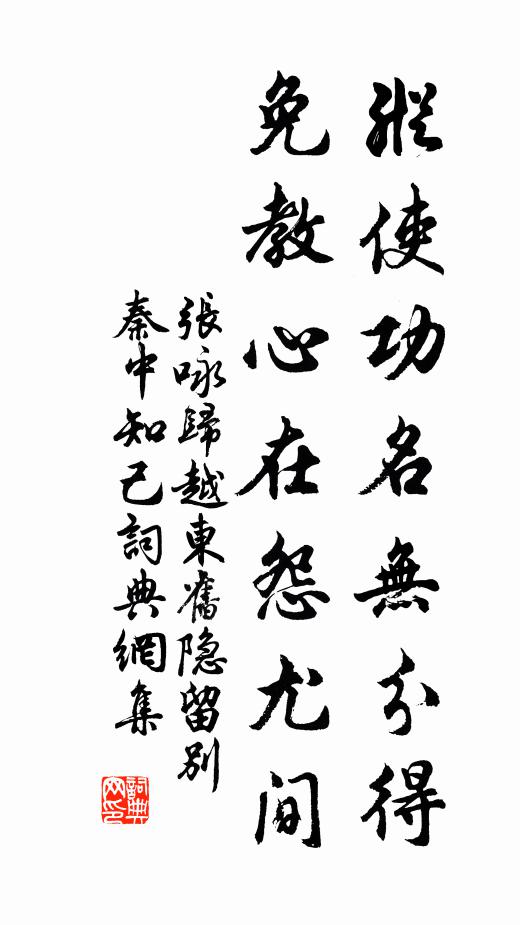 縱使功名無分得
免教心在怨尤间
張咏歸越東舊隐留別
秦中知己詞典網集
詞典網印